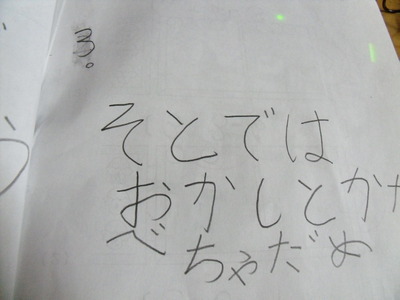 3。
そとでは
おかしとかた
べちゃだめ